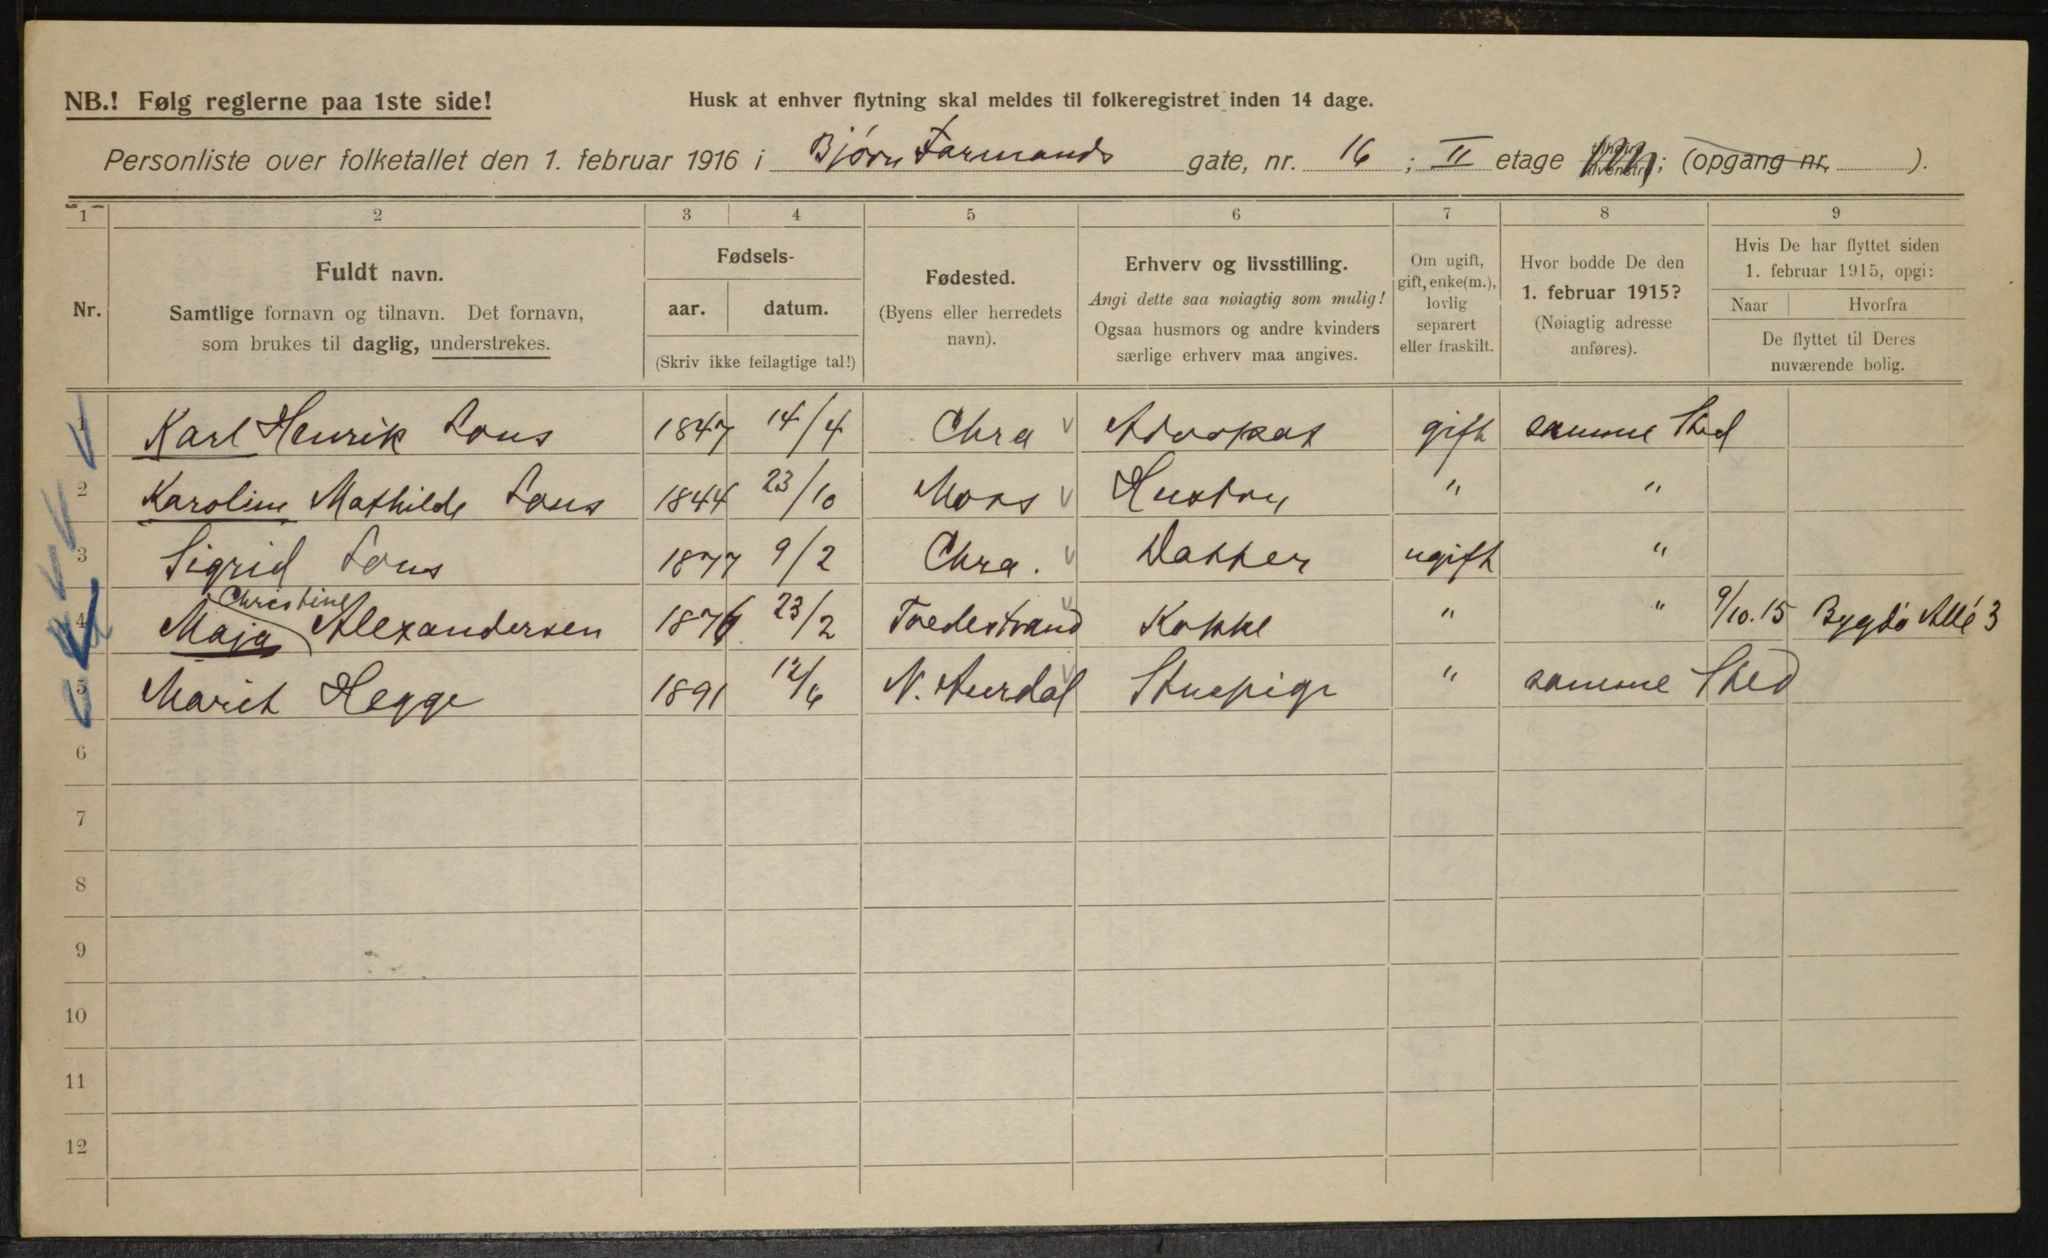 NB.! Følg reglerne paa 1ste side!
Husk at enhver flytning skal meldes til folkeregistret inden 14 dage.
Personliste over folketallet den 1. februar 1916 i Bjørn Farmands gate, nr. 16 ; II etage ; (opgang nr. ).
1 2 3 4 5 6 7 8 9
Nr.
Fuldt navn.
Samtlige fornavn og tilnavn. Det fornavn,
som brukes til daglig, understrekes.
Fødsels-
aar. datum.
(Skriv ikke feilagtige tal!)
Fødested.
(Byens eller herredets
navn).
Erhverv og livsstilling.
Angi dette saa nøiagtig som mulig!
Ogsaa husmors og andre kvinders
særlige erhverv maa angives.
Om ugift,
gift, enke(m.),
lovlig
separert
eller fraskilt.
Hvor bodde De den
1. februar 1915?
(Nøiagtig adresse
anføres).
Hvis De har flyttet siden
1. februar 1915, opgi:
Naar Hvorfra
De flyttet til Deres
nuværende bolig.
1 Karl Henrik Lous 1847 14/4 Chra Advokat gift samme Sted
2 Karoline Mathilde Lous 1844 23/10 Moss Hustru " "
3 Sigrid Lous 1877 9/2 Chra. Datter ugift "
Christine
4 Maja Alexandersen 1876 23/2 Tvedestrand Kokke " " 9/10.15 Bygdø Allé 3
5 Marit Hegge 1891 12/6 N. Aurdal Stuepige " samme Sted
6
7
8
9
10
11
12